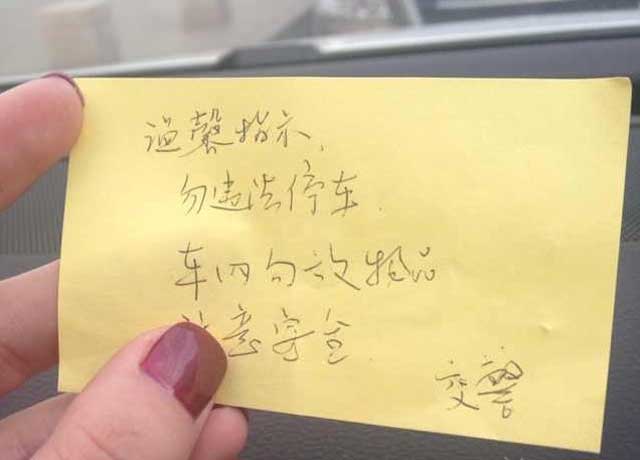 温馨指示,
勿违法停车.
车内勿放物品
注意安全.
交警